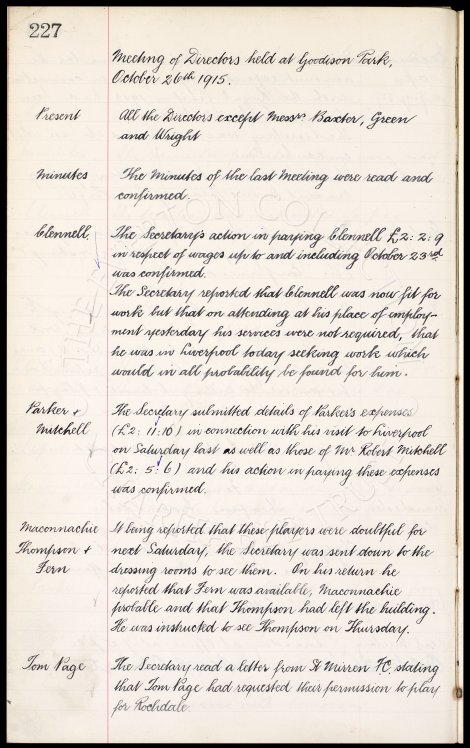 227
Meeting of Directors held at Goodison Park,
October 26th 1915.
Present All the Directors except Messrs. Baxter, Green
and Wright
Minutes The Minutes of the last Meeting were read and
confirmed.
Clennell. The Secretary's action in paying Clennell £2: 2: 9
in respect of wages up to and including October 23rd
was confirmed.
The Secretary reported that Clennell was now fit for
work but that on attending at his place of employ-
ment yesterday his services were not required, that
he was in Liverpool today seeking work which
would in all probability be found for him.
Parker + The Secretary submitted details of Parker's expenses
Mitchell (£2: 11: 10) in connection with his visit to Liverpool
on Saturday last as well as those of Mr Robert Mitchell
(£2: 5: 6) and his action in paying these expenses
was confirmed.
Maconnachie It being reported that these players were doubtful for
Thompson + next Saturday, the Secretary was sent down to the
Fern dressing rooms to see them. On his return he
reported that Fern was available, Maconnachie
probable and that Thompson had left the building.
He was instructed to see Thompson on Thursday.
Tom Page The Secretary read a letter from St Mirren F.C. stating
that Tom Page had requested their permission to play
for Rochdale.